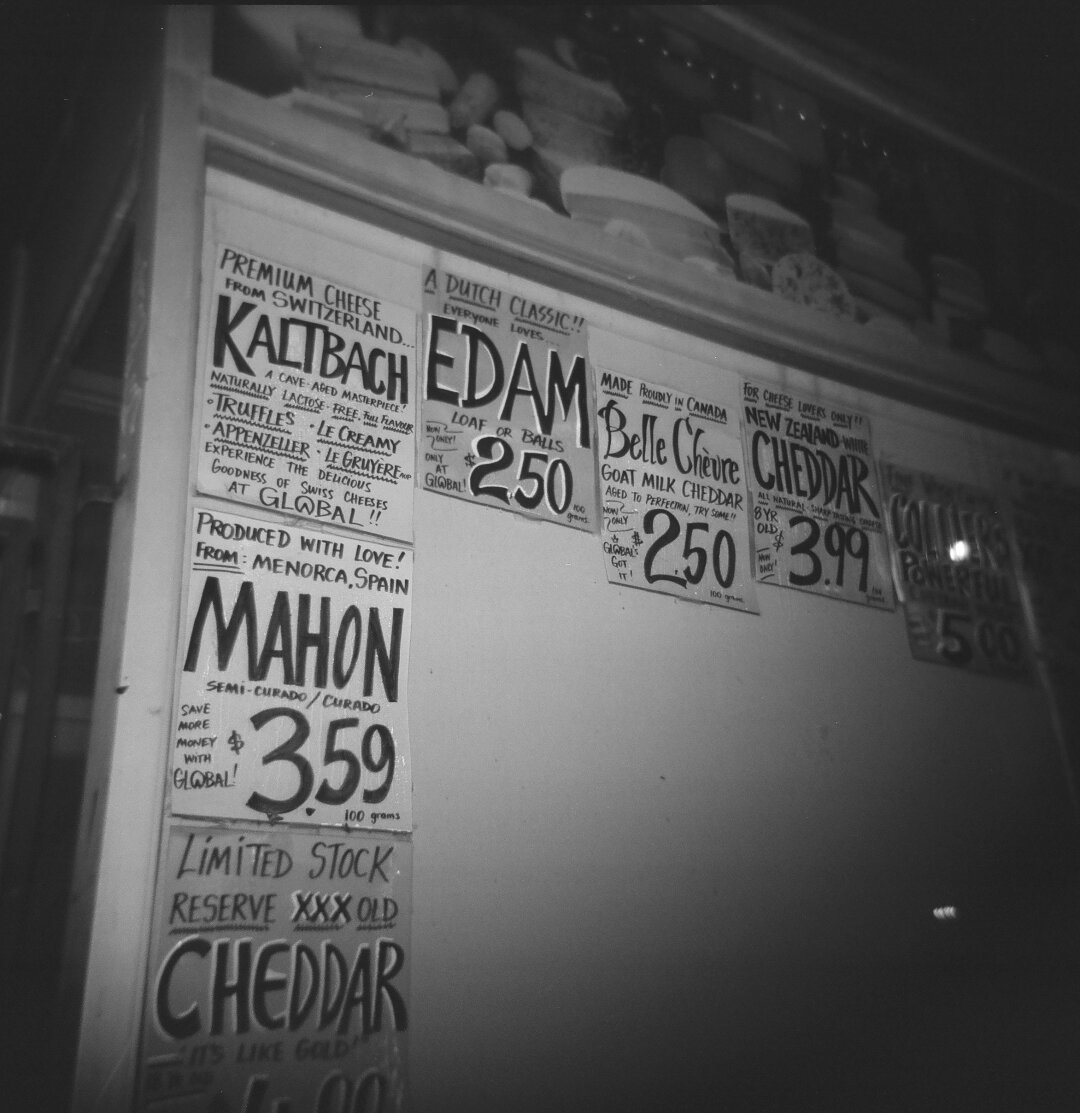 PREMIUM CHEESE
FROM SWITZERLAND...
KALTBACH
A CAVE-AGED MASTERPIECE!
NATURALLY LACTOSE-FREE, FULL FLAVOUR
•TRUFFLES •LE CREAMY
•APPENZELLER •LE GRUYERE AOP
EXPERIENCE THE DELICIOUS
GOODNESS OF SWISS CHEESES
AT GLOBAL!!
A DUTCH CLASSIC!!
EVERYONE LOVES...
EDAM
LOAF OR BALLS
NOW
ONLY!
ONLY
AT
GLOBAL!
$2.50
100
grams
MADE PROUDLY IN CANADA
Belle Chèvre
GOAT MILK CHEDDAR
AGED TO PERFECTION, TRY SOME!!
NOW
ONLY
GLOBAL'S
GOT
IT!
$2.50
100 grams
FOR CHEESE LOVERS ONLY!!
NEW ZEALAND WHITE
CHEDDAR
ALL NATURAL
8 YR
OLD
NOW
ONLY!
$3.99
100
grams
COLLIERS
POWERFUL
5.00
PRODUCED WITH LOVE!
FROM: MENORCA, SPAIN
MAHON
SEMI-CURADO/CURADO
SAVE
MORE
MONEY
WITH
GLOBAL!
$3.59
100 grams
LIMITED STOCK
RESERVE XXX OLD
CHEDDAR
IT'S LIKE GOLD!